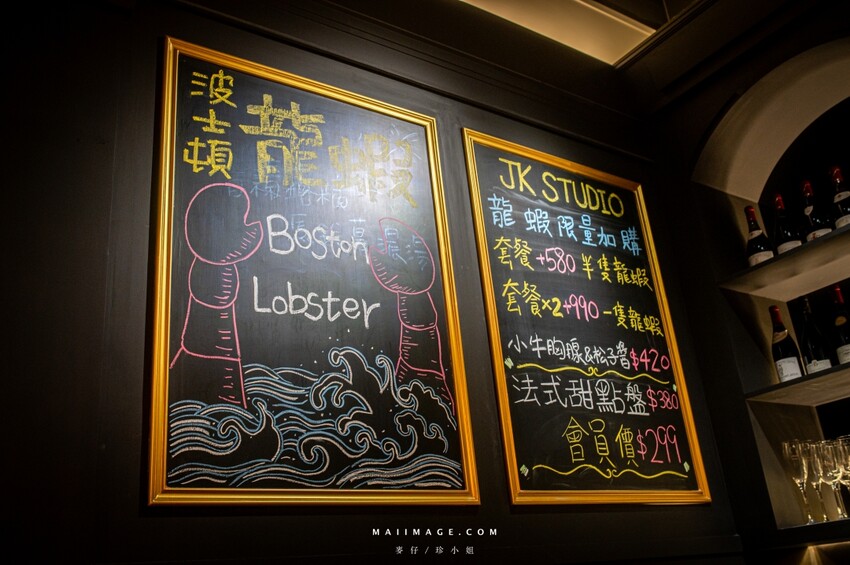 波士頓
龍蝦
Boston
Lobster
JK STUDIO
龍蝦限量加購
套餐+580半隻龍蝦
套餐×2+990一隻龍蝦
小牛胸腺&松子醬$420
法式甜點盤$380
會員價$299
MAIIMAGE.COM
麥仔/珍小姐